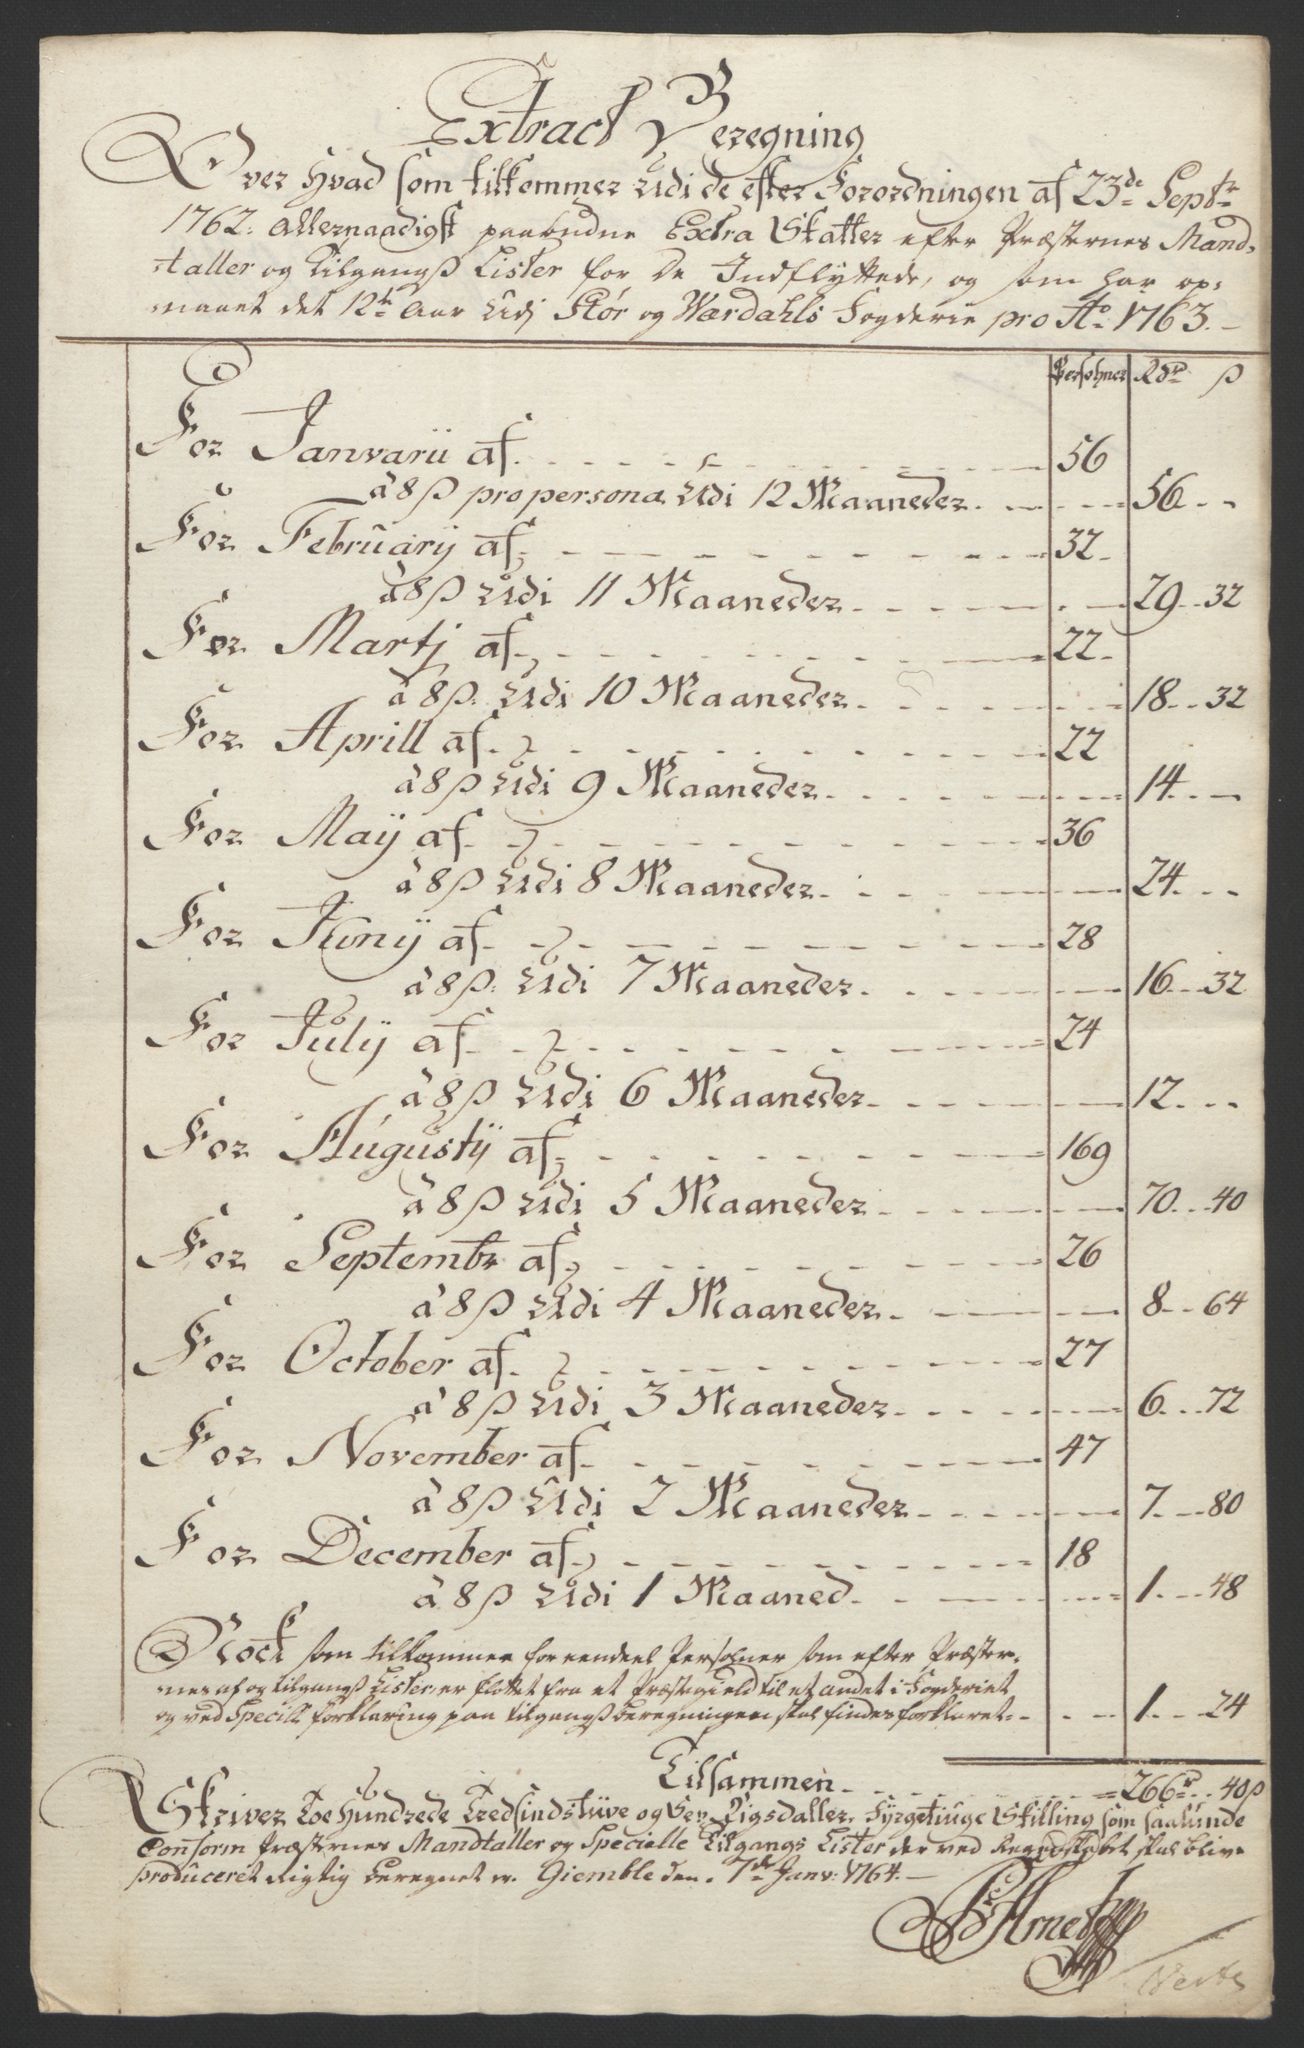 Extract Beregning
Over Hvad som tilkommer udi de efter Forordningen af 23de Septr
1762. allernaadigst paabudne Extra Skatter efter Præsternes Mand-
taller og Tilgangs Lister for de Indflyttede, og som har op-
naaet det 12te Aar udj Stør og Wærdahls Fogderie pro Ao 1763.
Persohner Rdr ß
For Janvarii af 56
à 8 ß pro persona udi 12 Maaneder 56
For Februarij af 32
à 8 ß udi 11 Maaneder 29 32
For Martj af 22
à 8 ß. udi 10 Maaneder 18 32
For Aprill af 22
à 8 ß udi 9 Maaneder 14
For Maij af 36
à 8 ß udi 8 Maaneder 24
For Junij af 28
à 8 ß. udi 7 Maaneder 16 32
For Julij af 24
à 8 ß udi 6 Maaneder 12
For Augustij af 169
à 8 ß udi 5 Maaneder 70 40
For Septembr af 26
à 8 ß udi 4 Maaneder 8 64
For October af 27
à 8 ß udi 3 Maaneder 6 72
For November af 47
à 8 ß udi 2 Maaneder 7 80
For December af 18
à 8 ß udi 1 Maaned 1 48
Nock som tilkommer for eendeel Persohner som efter Præster-
nes af og tilgangs Lister er fløttet fra et Præstegield til et andet i Fogderiet
og ved Speciel forklaring paa tilgangs beregningen skal findes forklaret 1 24
Tilsammen 266 rd 40 ß
Skriver Toe Hundrede Tredsindstiuve og Sex Rigsdaller, Fyrgetiuge Skilling som saalunde
Conform Præsternes Mandtaller og Specielle Tilgangs Lister der ved Regnskabet skal blive
produceret Rigtig beregnet er. Giemble den 7de Janv: 1764.
Arnet
Verte